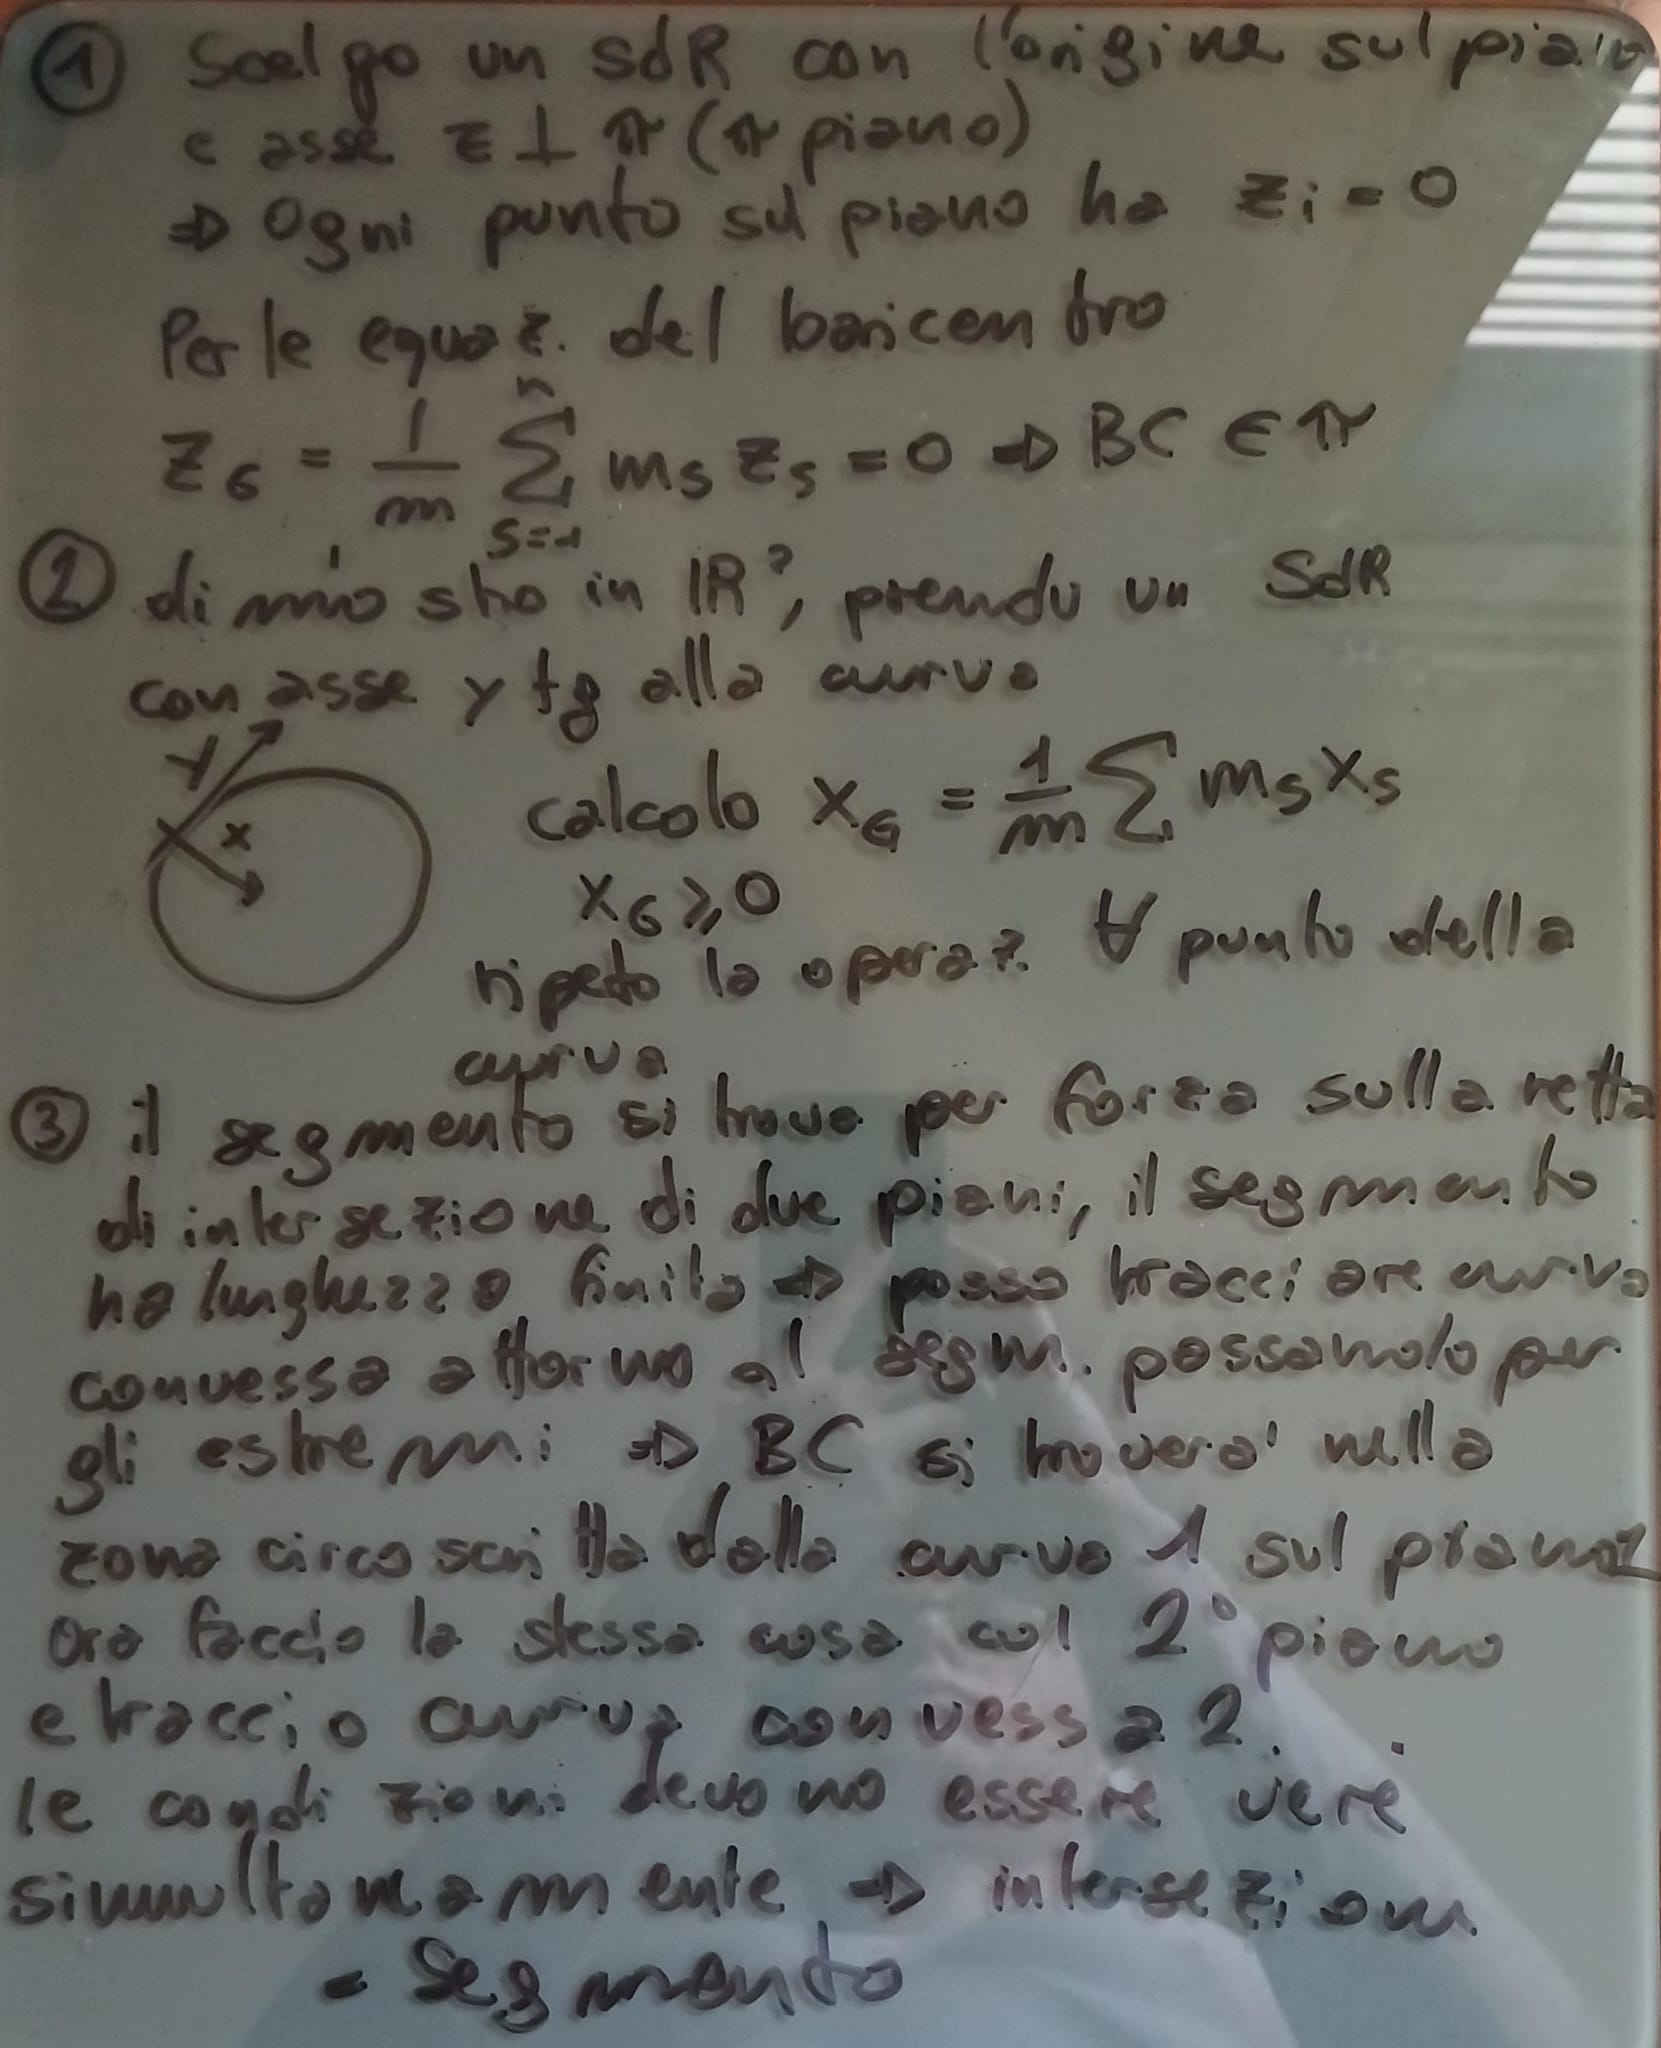 ① Scelgo un SdR con l'origine sul piano
e asse z ⊥ π (π piano)
⇒ Ogni punto sul piano ha zi = 0
Per le equaz. del baricentro
ZG = 1/m Σ(s=1, n) ms zs = 0 ⇒ BC ∈ π
② dimio sto in IR², prendo un SdR
con asse y tg alla curva
y
x
calcolo xG = 1/m Σ ms xs
xG ≥ 0
ripeto la operaz. ∀ punto della
curva
③ il segmento si trova per forza sulla retta
di intersezione di due piani, il segmento
ha lunghezza finita ⇒ posso tracciare curva
convessa attorno al segm. passando per
gli estremi ⇒ BC si troverà nella
zona circoscritta dalla curva 1 sul piano 1
Ora faccio la stessa cosa col 2° piano
e traccio curva convessa 2.
le condizioni devono essere vere
simultaneamente ⇒ intersezione
= segmento